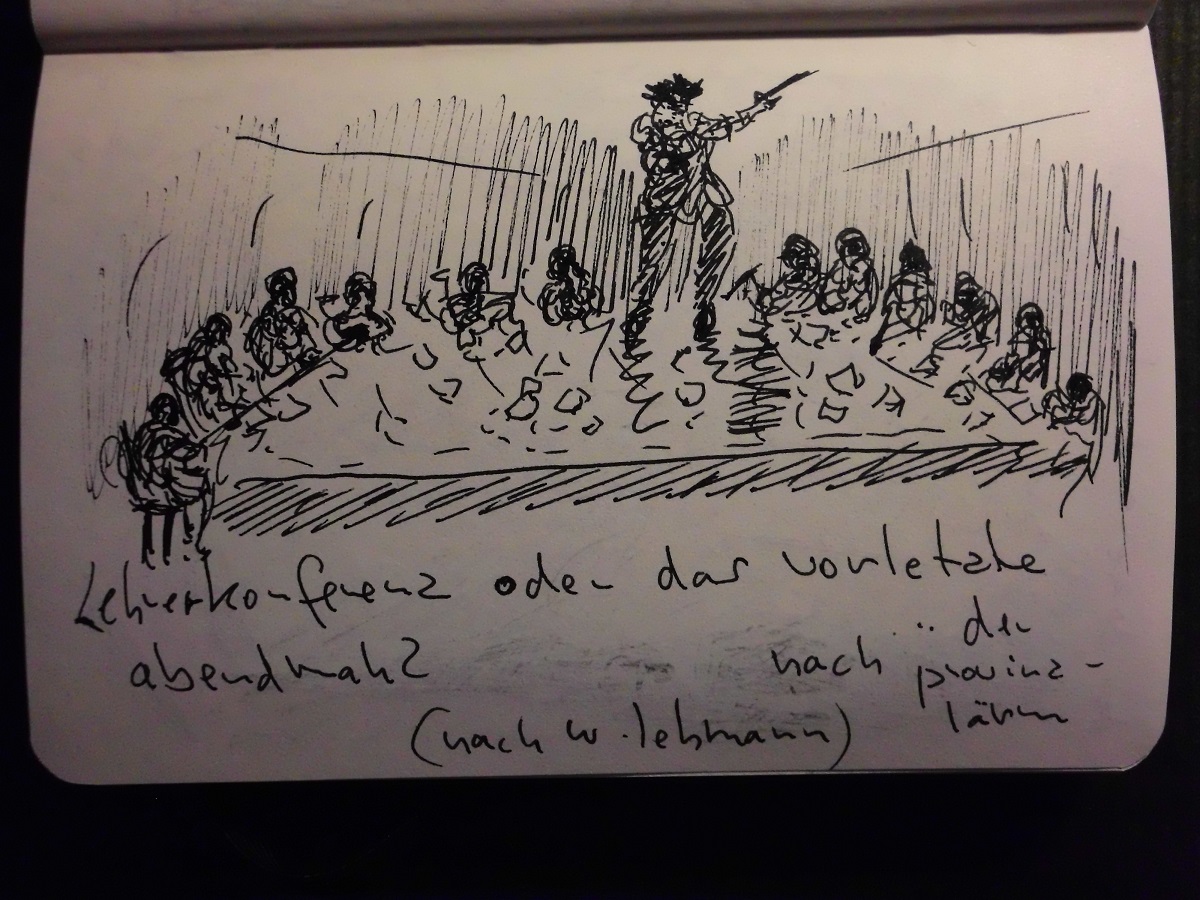 Lehrerkonferenz oder das vorletzte
abendmahl
nach "der
provinz-
lärm
(nach w. lehmann)